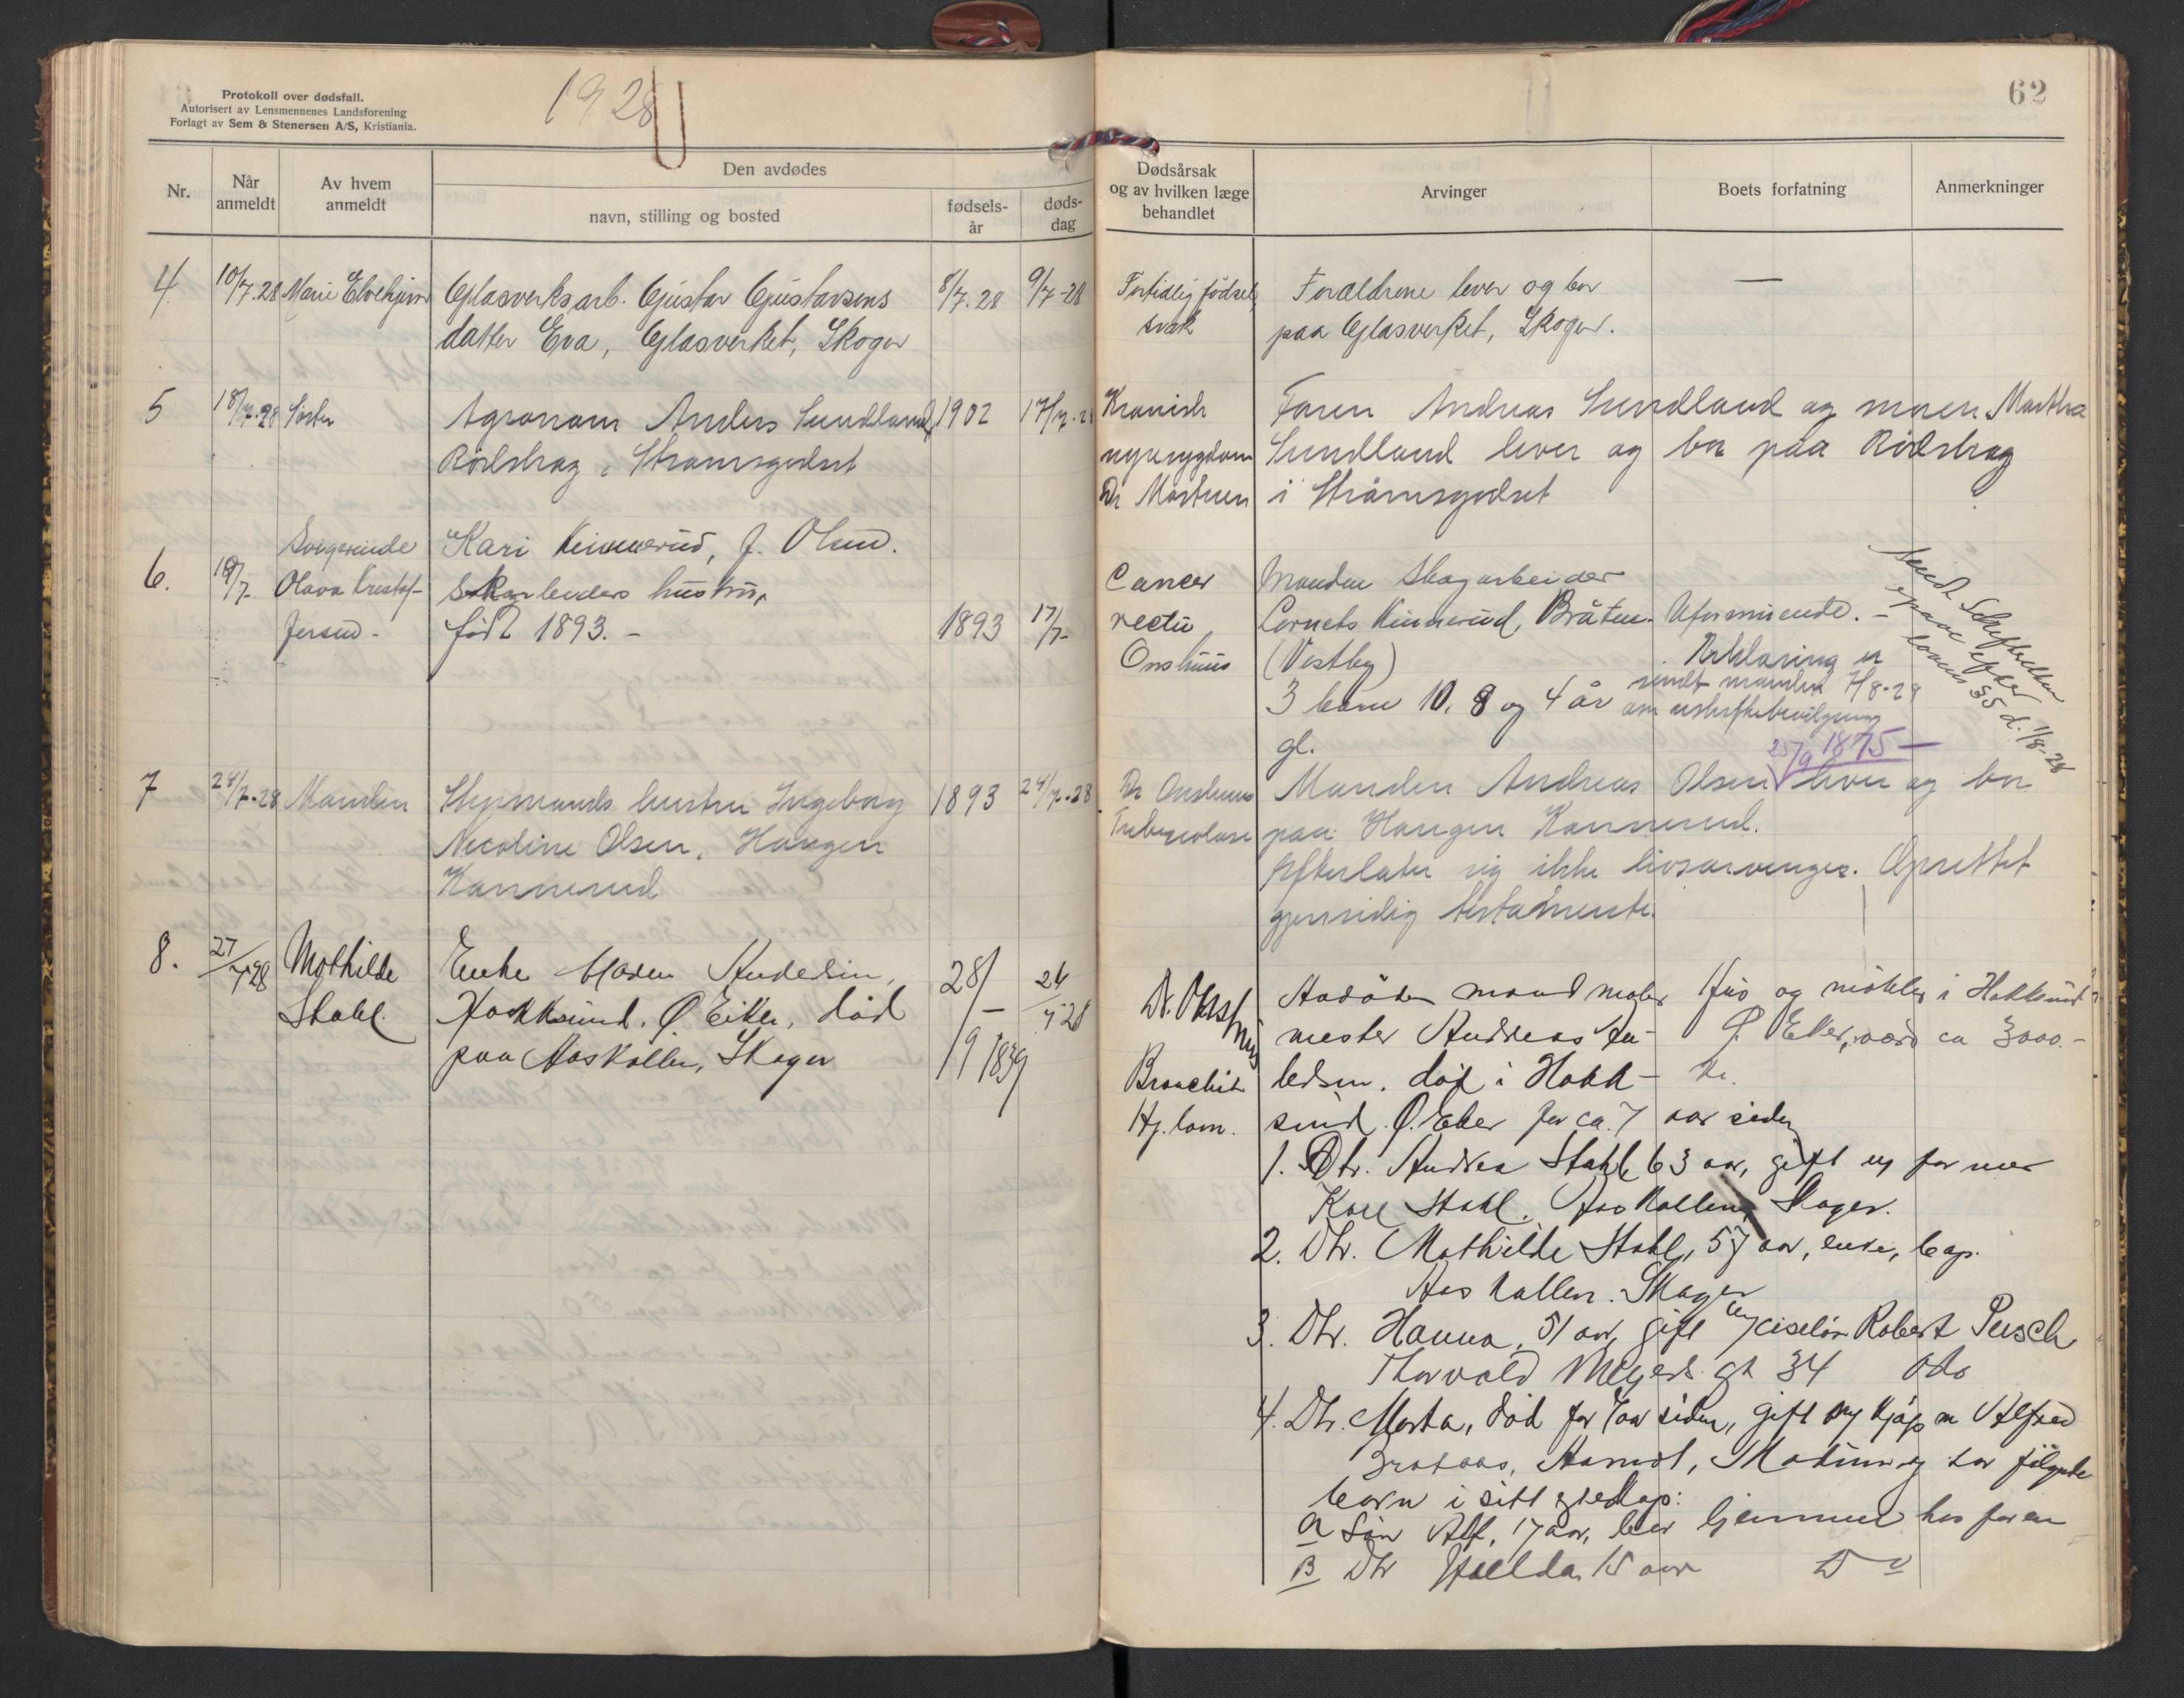 Protokoll over dødsfall.
Autorisert av Lensmennenes Landsforening
Forlagt av Sem & Stenersen A/S, Kristiania.
1928
62
Nr.
Når anmeldt
Av hvem anmeldt
Den avdødes
navn, stilling og bosted
fødsels-år
døds-dag
Dødsårsak og av hvilken læge behandlet
Arvinger
Boets forfatning
Anmerkninger
4
10/7.28
Marie Elvehjem
Glasverksarb. Gustav Gustavsens
datter Eva, Glasverket, Skoger
8/7.28
9/7-28
Fortidlig fødsel,
svak
Forældrene lever og bor
paa Glasverket, Skoger.
—
5
18/7.28
Søster
Agronom Anders Sundland,
Rødskog, Strømsgodset
1902
17/7.28
Kronisk
nyresygdom
Dr
Faren Andreas Sundland og moren Martha
Sundland lever og bor paa Rødskog
i Strømsgodset
6.
18/7-
Svigerinde
Olava Kristof-
fersen-
Kari Kinnerud, f. Olsen.
Skogarbeiders hustru,
født 1893.-
1893
17/7-
Cancer
recti
Onshuus
Manden Skogarbeider
Kinnerud, Bråten
(Vestby)
3 barn 10, 8 og 4 år
gl.
Uformuende.-
Erklæring er
sendt manden 7/8-28
om uskiftebevilgning
25/9 1875—
Sendt Skifteretten
opgave efter
lovens § 5 d. 1/8-28
7
24/7-28
Manden
Styrmands hustru Ingeborg
Nicoline Olsen, Haugen
Konnerud
1893
24/7-28
Dr Onshuus
Tuberculose
Manden Andreas Olsen lever og bor
paa Haugen Konnerud.
Efterlater sig ikke livsarvinger. Oprettet
gjensidig testamente.
8.
27/7-28
Mathilde
Stahl.
Enke Maren Andersen,
Hokksund. Ø. Eiker, død
paa Aaskollen, Skoger
28/9 1839
26/7 28
Dr. Onshuus
Bronchit
Hj. lam.
Avdødes mand maler
mester Andreas An-
dersen. død i Hokk-
sund. Ø. Eker for ca. 7 aar siden
Hus og møbler i Hokksund
Ø. Eker, værd ca 3000.-
kr.
1. Dtr. Andrea Stahl, 63 aar, gift m/ former
Karl Stahl. Aaskollen, Skoger.
2. Dtr. Mathilde Stahl, 57 aar, enke, bop.
Aaskollen. Skoger
3. Dtr. Hanna, 51 aar, gift m/ ciselør Robert Pusch
Thorvald Meyers gt 34 Oslo
4. Dtr. Marta, død for 7 aar siden, gift m/ kjøpm Alfred
Modum og har følgende
barn i sitt egteskap:
a Søn Alf, 17 aar, bor hjemme hos faren
B Dtr Hilda 15 aar Do